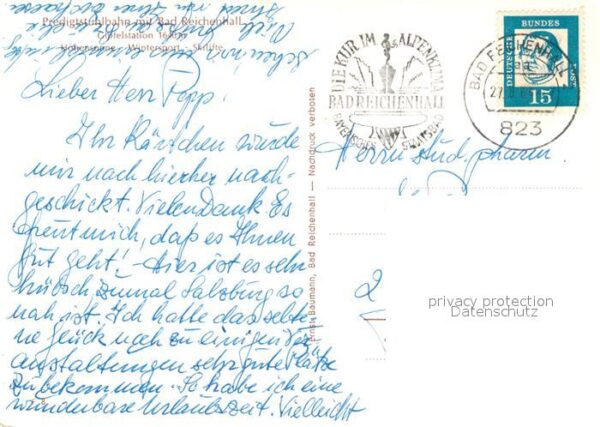 Predigtstuhlbahn mit Bad Reichenhall
Gipfelstation
Höhensonne - Wintersport - Skilifte
Lieber Herr Popp.
Ihr Kärtchen wurde
mir nach hierher nach-
geschickt. Vielen Dank. Es
freut mich, daß es Ihnen
gut geht! - Hier ist es sehr
hübsch zumal Salzburg so
nah ist. Ich hatte das selte-
ne Glück noch zu einigen Ver-
anstaltungen sehr gute Plätze
zu bekommen. So habe ich eine
wunderbare Urlaubszeit. Vielleicht
Ernst Baumann, Bad Reichenhall — Nachdruck verboten
DIE KUR IM ALPENKLIMA
BAD REICHENHALL
BAYERISCHES STAATSBAD
BAD REICHENHALL
823
DEUTSCHE BUNDESPOST
15
Herrn stud. pharm.
2
privacy protection
Datenschutz